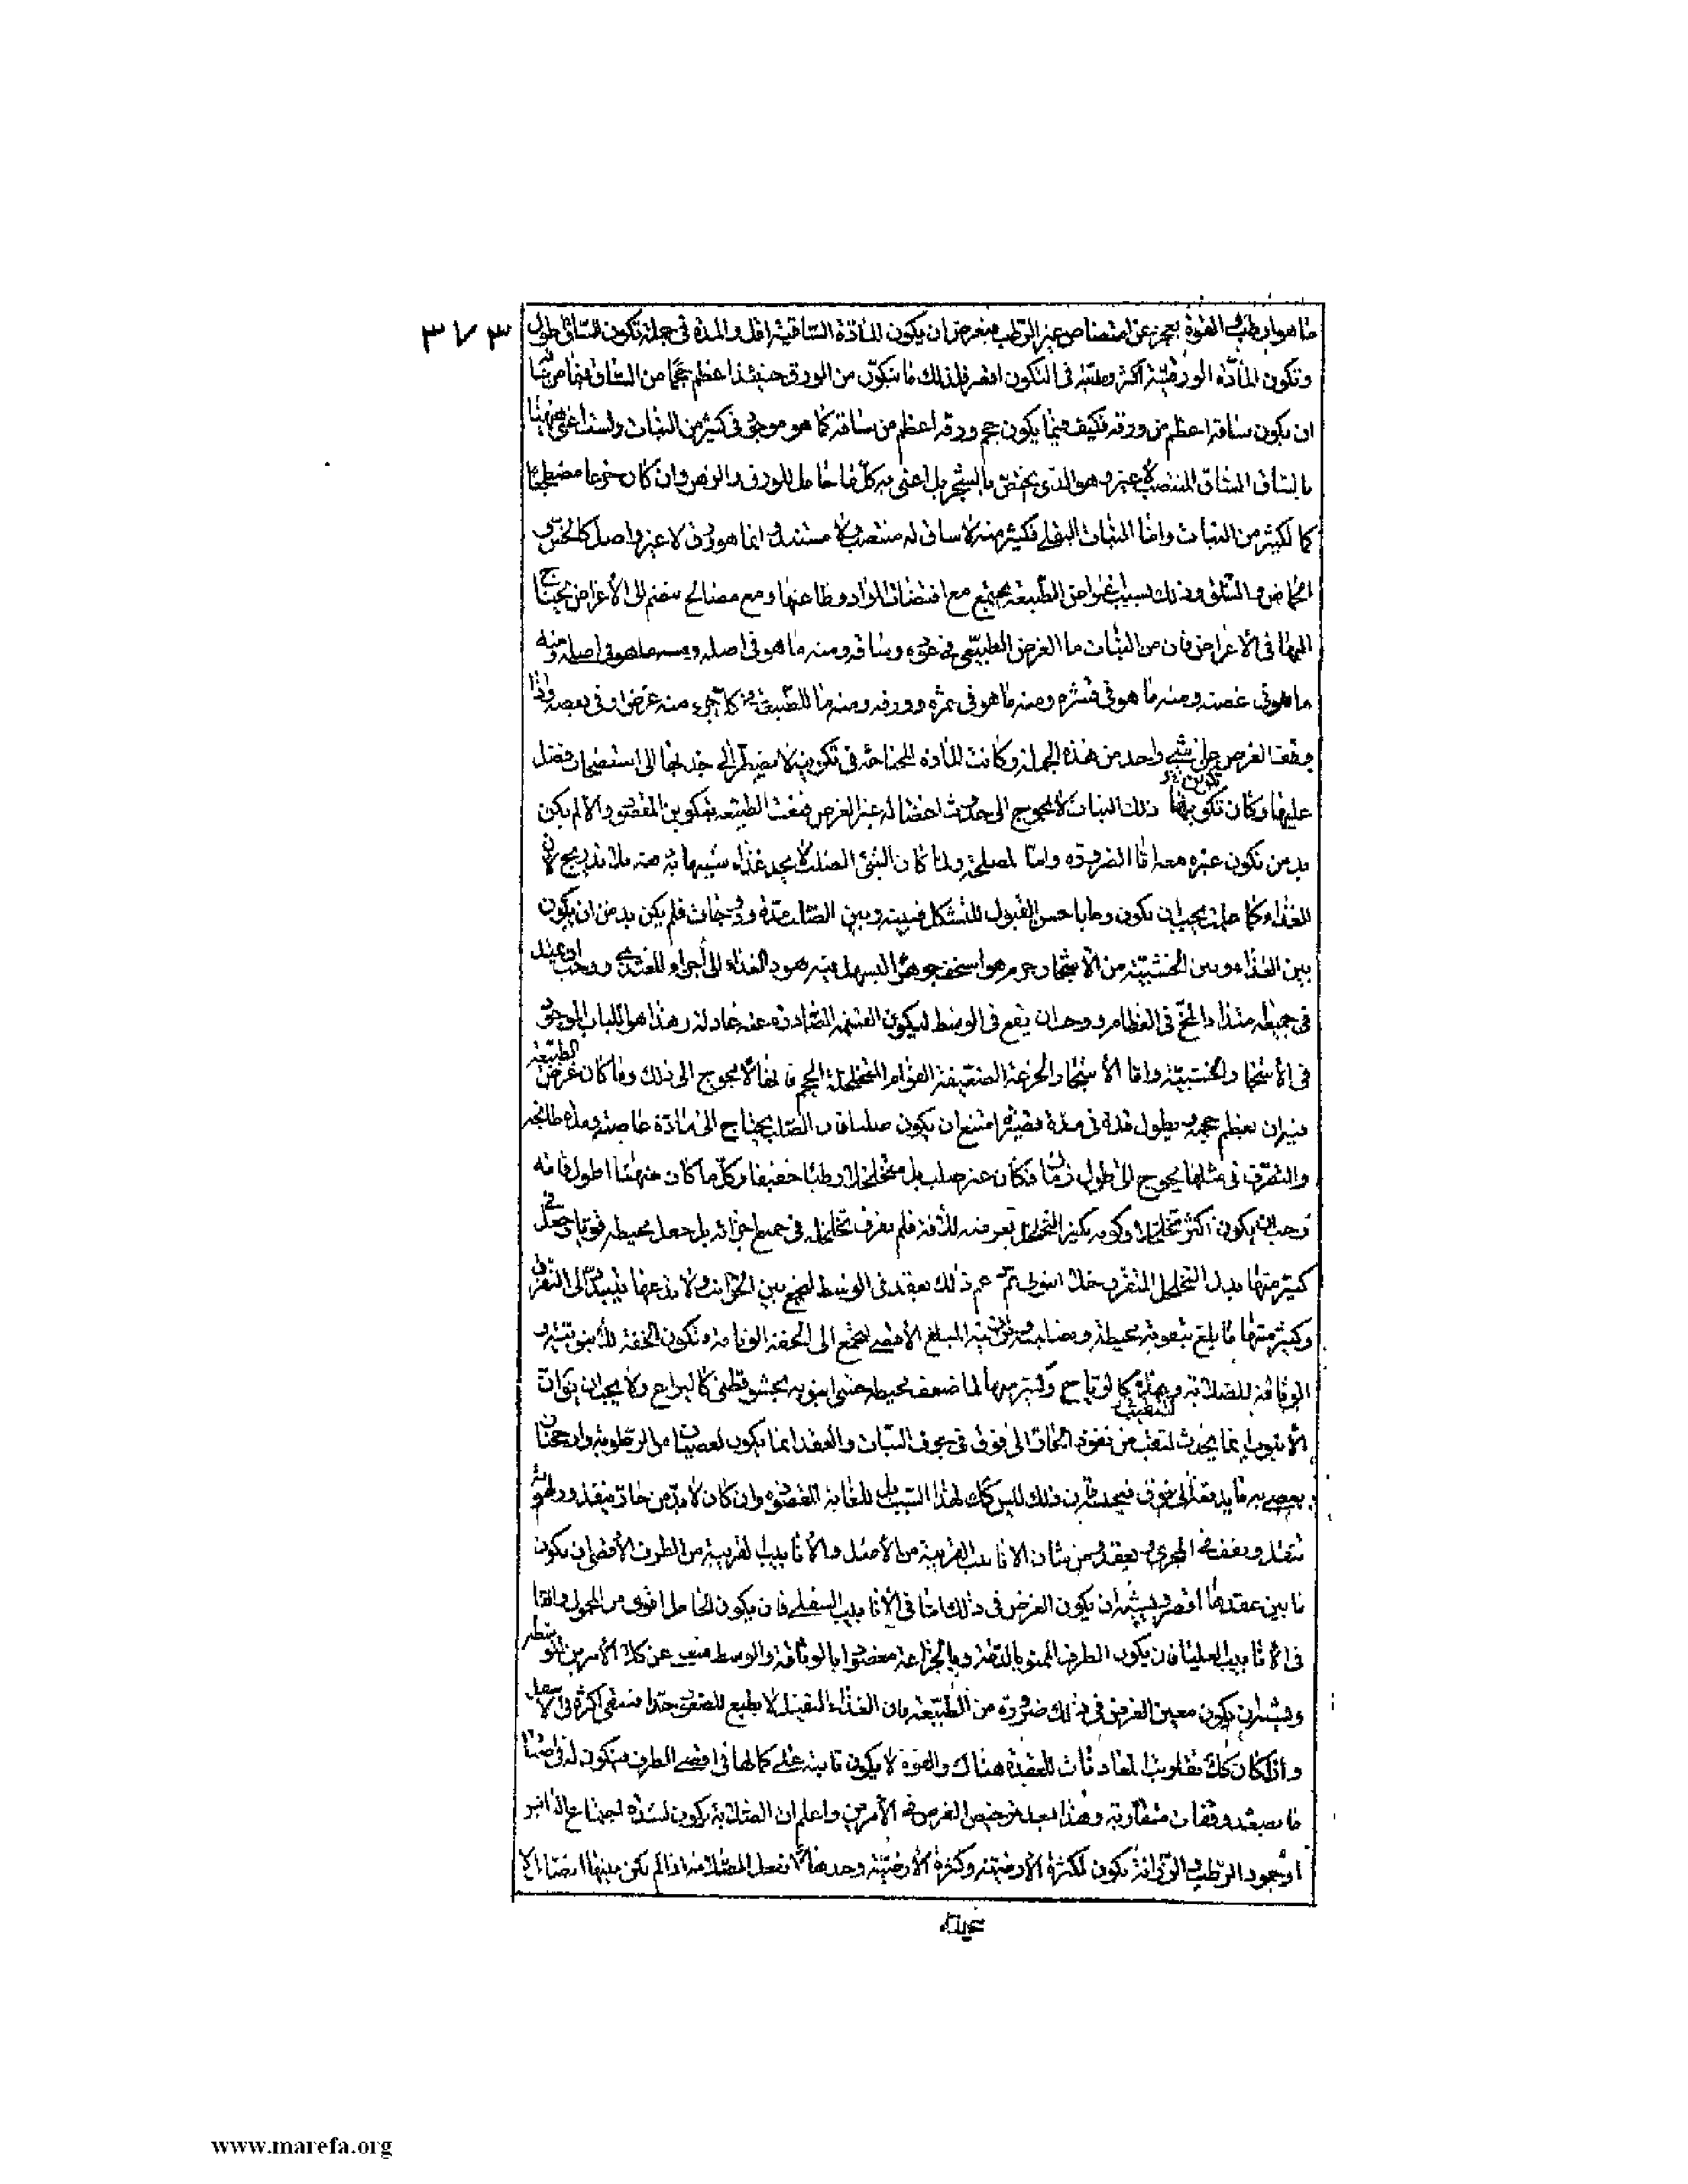 ٣٧٣
ما هو ارطب والقوة تعجز عن امتصاص غير الرطب فيعرض ان يكون المادة الساقية اقل والمدة فى جملة تكون الساق اطول
وتكون المادة الورقية اكثر ومدته فى التكون اقصر فلذلك ما يتكون من الورق حينئذ اعظم حجما من الساق فيما من شانه
ان يكون ساقه اعظم من ورقه فكيف فيما يكون حجم ورقه اعظم من ساقه كما هو موجود فى كثير من النبات ولسنا نعنى هيهنا
بالساق الساق المنتصب لا غير وهو الذى يختص بالشجر بل اعنى به كل ما حامل للورق والزهر وان كان خرعا مضطجعا
كما لكثير من النبات واما النبات البقلى فكثير منه لا ساق له منتصب ولا مستند وانما هو ورق لا غير واصل كالخس و
الحماض والسلق وذلك بسبب اغراض الطبيعة يجتمع مع اقتضاات المواد وطاعتها ومع مصالح تنضم الى الاغراض يحتاج
اليها فى الاغراض فان من النبات ما الغرض الطبيعى فى عوده وساقه ومنه ما هو فى اصله ومنه
ما هو فى غصنه ومنه ما هو فى قشره ومنه ما هو فى ثمره وورقه ومنه ما للطبيعة فى كل جزء منه غرض او فى بعضه واذا
وقف الغرض على شىء واحد من هذه الجملة وكانت المادة المحتاجة فى تكوينه لا تضطر الى جذبها الى استصحاب فضل
عليها وكان تكوينها ذلك النبات لا يحوج الى حدوث اعضا له غير الغرض قنعت الطبيعة بتكوين المقصود والا لم يكن
بد من تكون غيره معه اما الضرورة واما لمصلحة ولما كان الشىء الصلب لا يجد غذاء شبيها به منه بلا تدريج لان
الغذاء كما علمت يجب ان يكون رطبا حسن القبول للتشكل فبينه وبين الصلب مدة ودرجات فلم يكن بد من ان يكون
بين الغذاء وبين الخشبية من الاشجار جرم هو اسخف جوهرا ليسهل فيه نفوذ الغذاء الى اجزاء المغتذى ووجب ان يمتد
فى جميعه امتداد المخ فى العظام ووجب ان يقع فى الوسط ليكون القسمة الصادرة عنه عادلة وهذا هو اللباب الموجود
فى الاشجار الخشبية واما الاشجار الخرعة الضعيفة القوام المتخلخلة الحجم فانها لا يحوج الى ذلك وما كان غرض الطبيعة
فيه ان يعظم حجمه ويطول قده فى مدة قصيرة امتنع ان يكون صلبا فان الصلب يحتاج الى مادة عاصية
والتصرف فى مثلها يحوج الى طول زمان فكان غير صلب بل متخلخلا رطبا خفيفا وكل ما كان منهما اطول قامة
وجب ان يكون اكثر تخلخلا وكونه كثير التخلخل يعرضه للافة فلم يفرق تخلخله فى جميع اجزائه بل جعل محيطه قويا وجعل فى
كثير منها بدل التخلخل المتفرق خلاء انبوبى ثم دعم ذلك بعقد فى الوسط ليجمع بين الجوانب ولا يدعها يتبدد الى التفرق
وكثير منها ما بلغ بتقوية محيطه وتصليبه المبلغ الاقصى ليجتمع الى الخفة الوثاقة وتكون الخفة للانبوبية و
الوثاقة للصلابة كالرماح وكثير منها لما ضعف محيطه حشى انبوبه بحشو قطنى كاليراع ولا يجب ان يتوان
الانبوب انما يحدث لتقب من نفوذ البخارات الى فوق فى جوف النبات والعقد انما يكون لعصيان من الرطوبة
ما يدفعه الى فوق فيحدث فان ذلك ليس كك لهذا السبب بل للغاية المقصودة وان كان لا بد من حار ينفذ ورطوبة
تنفذ ويقف فى المجرى وبعقد ومن شان الانابيب القريبة من الاصل والانابيب القريبة من الطرف الاقصى ان يكون
ما بين عقدها اقصر ويشبه ان يكون الغرض فى ذلك اما فى الانابيب السفلى فان يكون الحامل اقوى من المحمول واما
فى الانابيب العليا فان يكون الطرف الممنو بالدقة وبالخراعة معضودا بالوثاقة والوسط عن كلا الامرين
ويشبه ان يكون معين الغرض فى ذلك ضرورة من الطبيعة فان الغذاء الثقيل لا يطيع للصعود جدا فيبقى اكثره فى الاسفل
واذا كان كك تقاربت المعاقدات للعقدة هناك والقوة لا يكون ثابتة على كمالها فى اقصى الطرف فيكون له فى
ما يصعد وقفات متقاربة وهذا بعد ترخيص الغرض فى الامرين واعلم ان الصلابة يكون لشدة اجتماع
او لجمود الرطب والرزانة يكون لكثرة الارضية وكثرة الارضية وحدها لا تفعل الصلابة اذا لم يكن بينها
www.marefa.org